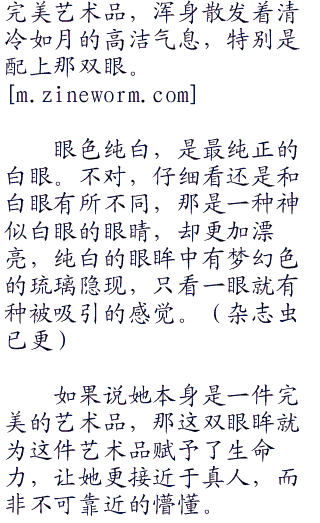 完美艺术品，浑身散发着清
冷如月的高洁气息，特别是
配上那双眼。
[m.zineworm.com]
眼色纯白，是最纯正的
白眼。不对，仔细看还是和
白眼有所不同，那是一种神
似白眼的眼睛，却更加漂
亮，纯白的眼眸中有梦幻色
的琉璃隐现，只看一眼就有
种被吸引的感觉。（杂志虫
已更）
如果说她本身是一件完
美的艺术品，那这双眼眸就
为这件艺术品赋予了生命
力，让她更接近于真人，而
非不可靠近的懵懂。